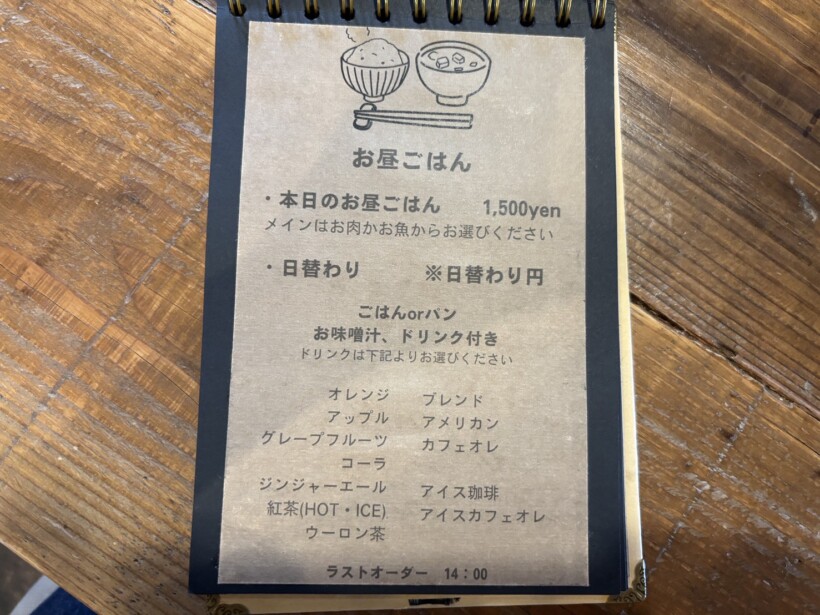 お昼ごはん
・本日のお昼ごはん 1,500yen
メインはお肉かお魚からお選びください
・日替わり ※日替わり円
ごはんorパン
お味噌汁、ドリンク付き
ドリンクは下記よりお選びください
オレンジ ブレンド
アップル アメリカン
グレープフルーツ カフェオレ
コーラ
ジンジャーエール アイス珈琲
紅茶(HOT・ICE) アイスカフェオレ
ウーロン茶
ラストオーダー 14：00